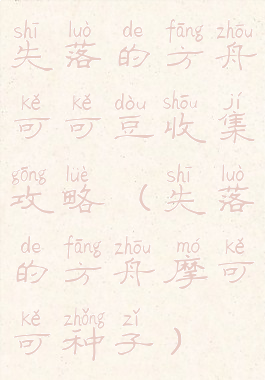 shī luò de fāng zhōu
失落的方舟
kě kě dòu shōu jí
可可豆收集
gōng lüè shī luò
攻略（失落
de fāng zhōu mó kě
的方舟摩可
kě zhǒng zǐ
可种子）